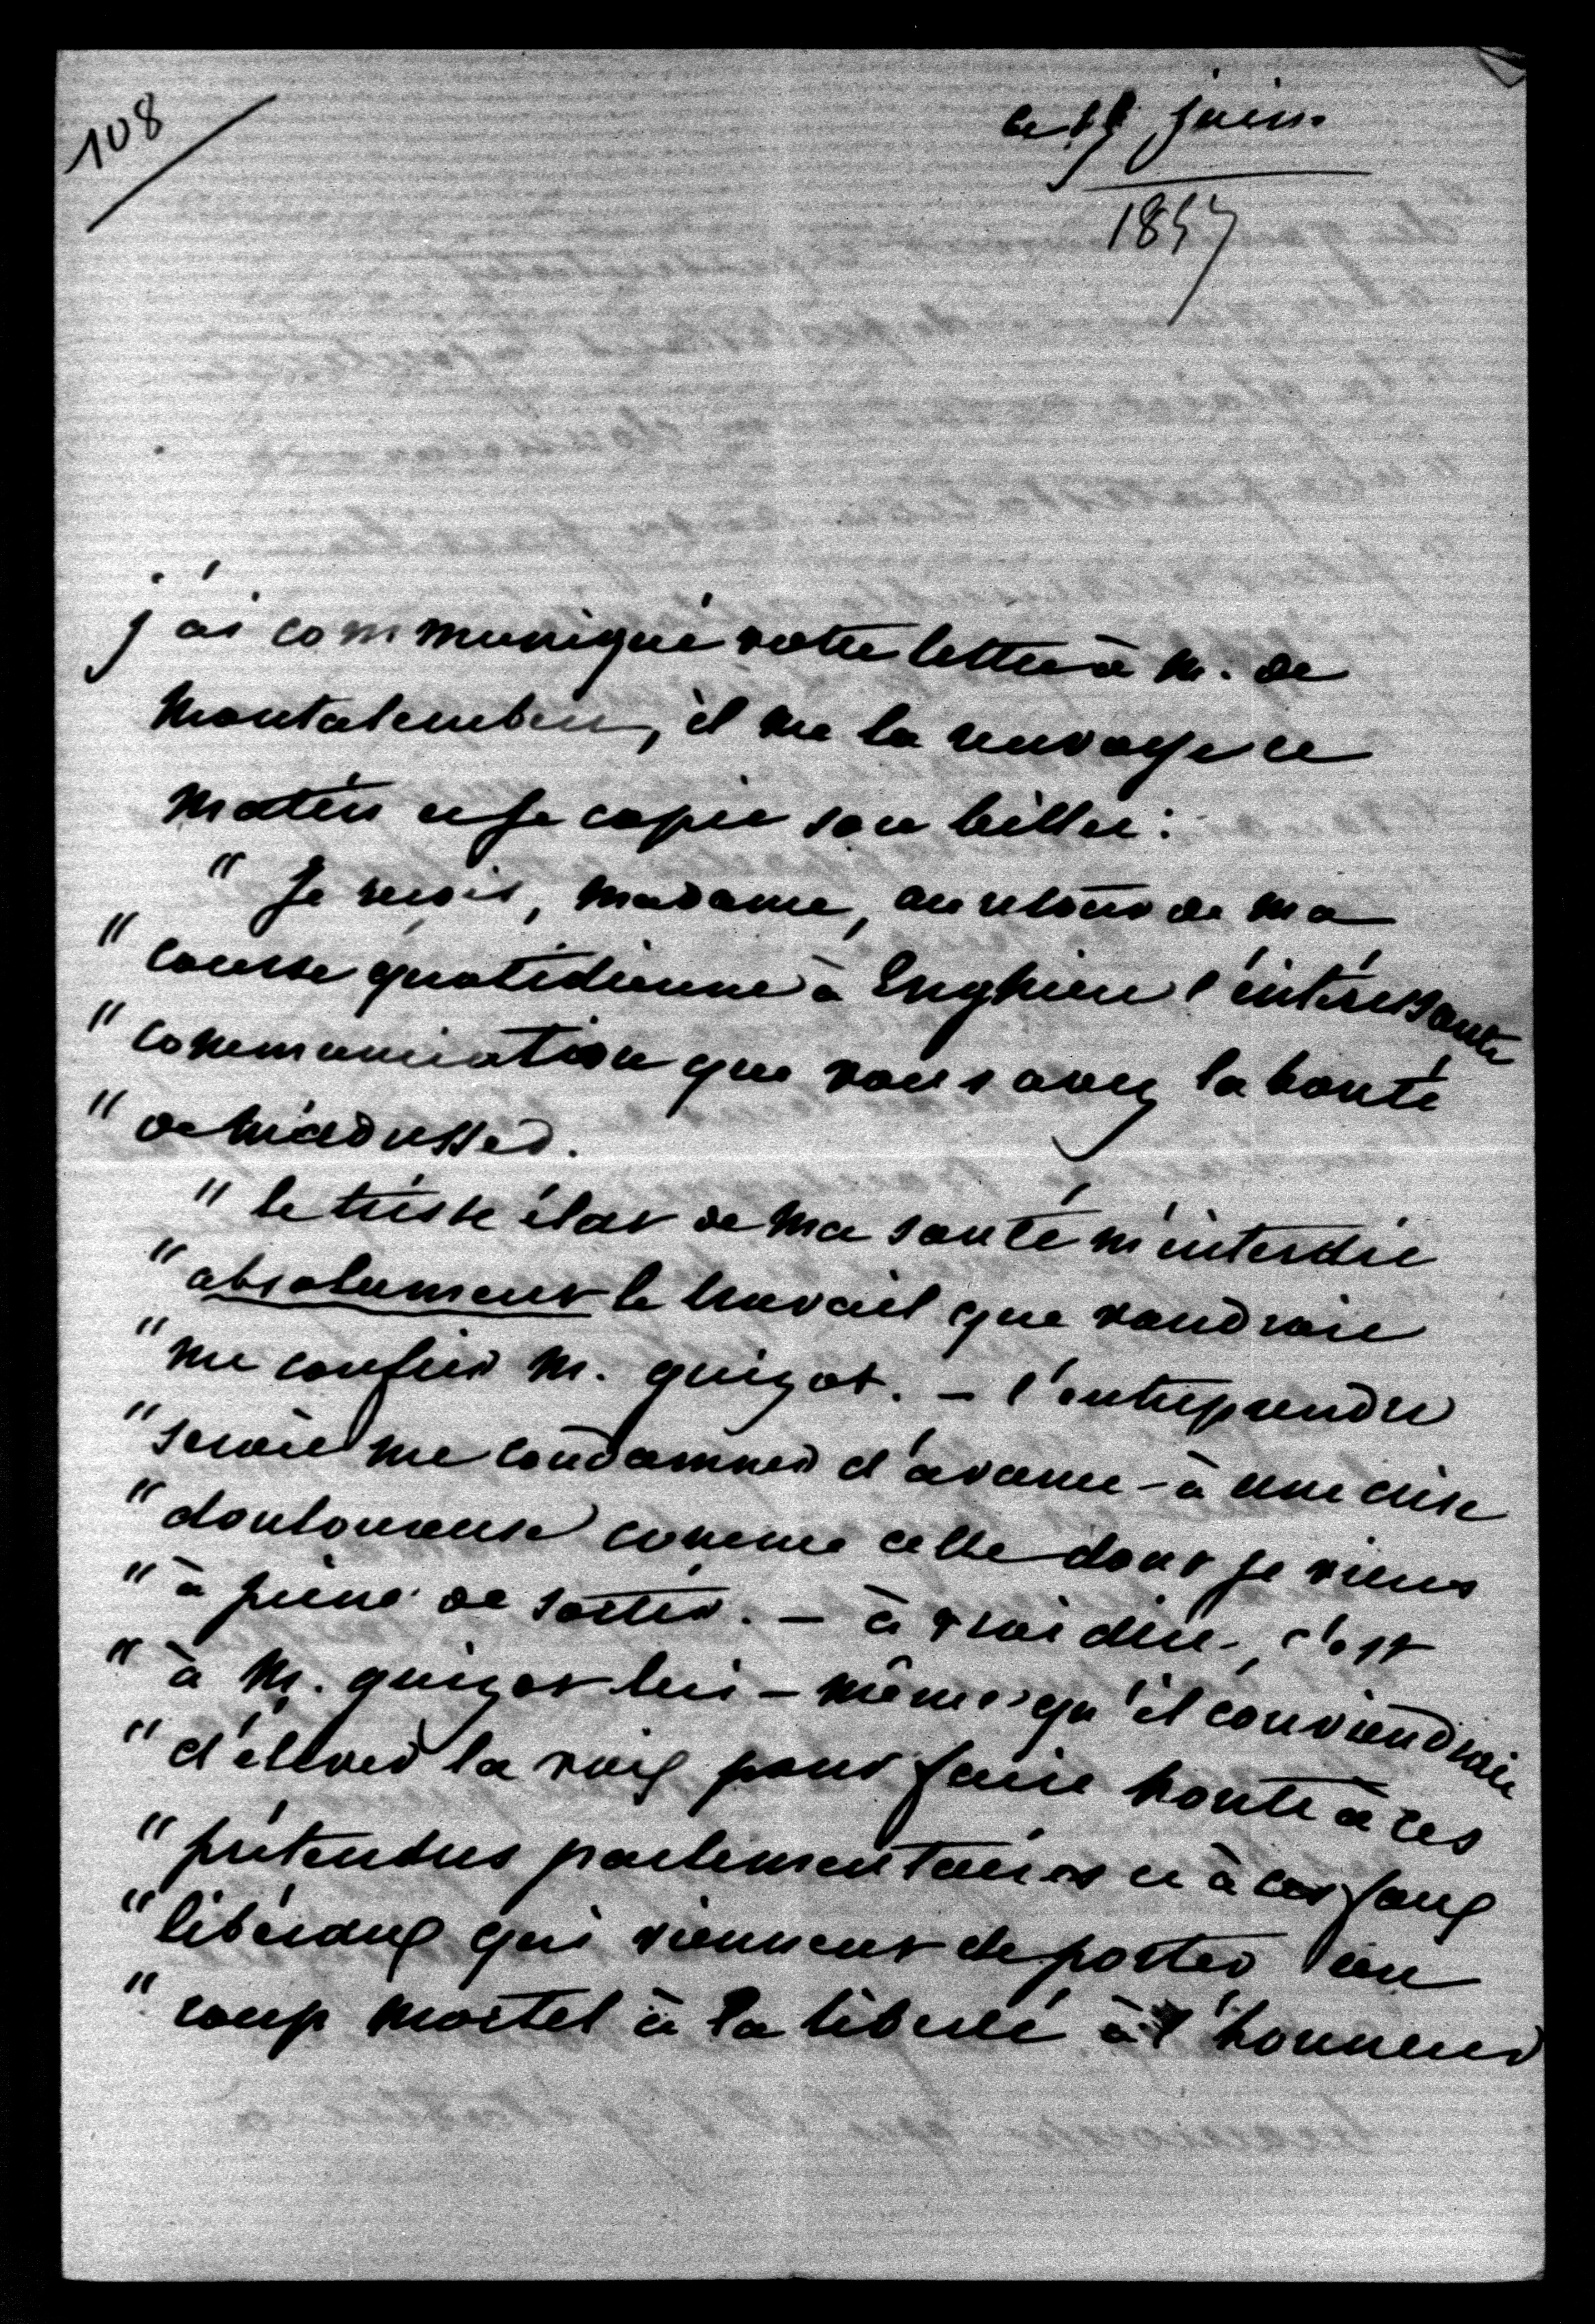 108
juin
1857
j'ai communiqué votre lettre à M. de
Montalembert, il me la renvoye ce
matin et je copie son billet :
" Je reçois, Madame, au retour de ma
" course quotidienne à Enghien l'intéressante
" communication que vous avez la bonté
" de m'adresser.
" le triste état de ma santé m'interdit
" absolument le travail que voudrait
" me confier M. guizot. – l'entreprendre
" serait me condamner d'avance à une crise
" douloureuse comme celle dont je viens
" à peine de sortir. – à vrai dire, c'est
" à M. guizot lui-même qu'il conviendrait
" d'élever la voix pour faire honte à ces
" prétendus parlementaires et à ces faux
" libéraux qui viennent de porter un
" coup mortel à la liberté à l'honneur